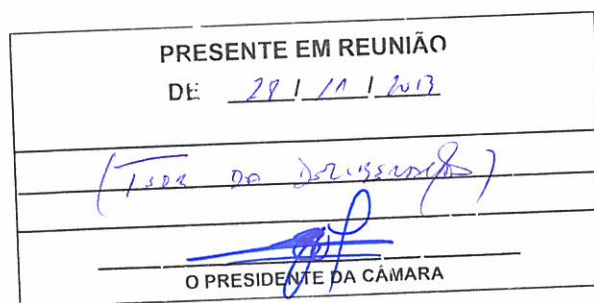 PRESENTE EM REUNIÃO
DE 28 / 11 / 2013
(TEOR DA DELIBERAÇÃO)
O PRESIDENTE DA CÂMARA